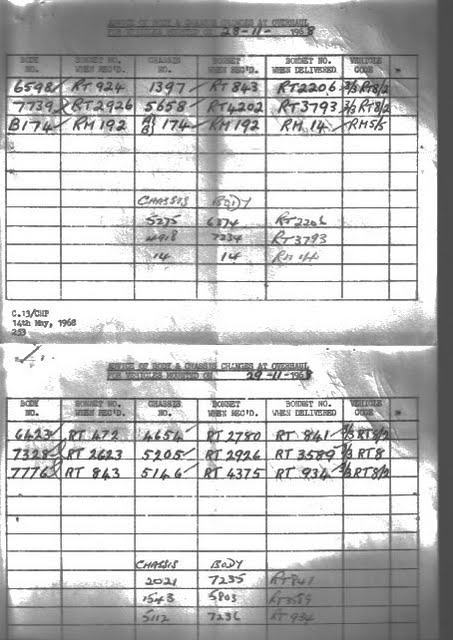 ADVICE OF BODY & CHASSIS CHANGES AT OVERHAUL
FOR VEHICLES MOUNTED ON 28-11-1968
BODY NO. BONNET NO. WHEN REC'D. CHASSIS NO. BONNET WHEN REC'D. BONNET NO. WHEN DELIVERED VEHICLE CODE
6598 RT 924 1397 RT 843 RT2206 3/3 RT8/2
7739 RT2926 5658 RT4202 RT3793 3/3 RT8/2
B174 RM 192 174 RM192 RM 14 RM5/5
CHASSIS BODY
5275 6374 RT2206
4918 7234 RT3793
14 14 RM 14
C.13/CHP
14th May, 1968
253
ADVICE OF BODY & CHASSIS CHANGES AT OVERHAUL
FOR VEHICLES MOUNTED ON 29-11-1968
BODY NO. BONNET NO. WHEN REC'D. CHASSIS NO. BONNET WHEN REC'D. BONNET NO. WHEN DELIVERED VEHICLE CODE
6423 RT 472 4654 RT 2780 RT 841 3/3 RT8/2
7328 RT 2623 5205 RT 2926 RT 3589 3/3 RT8
7776 RT 843 5146 RT 4375 RT 934 3/3 RT8/2
CHASSIS BODY
2021 7235 RT841
1543 5803 RT3589
5112 7236 RT 934